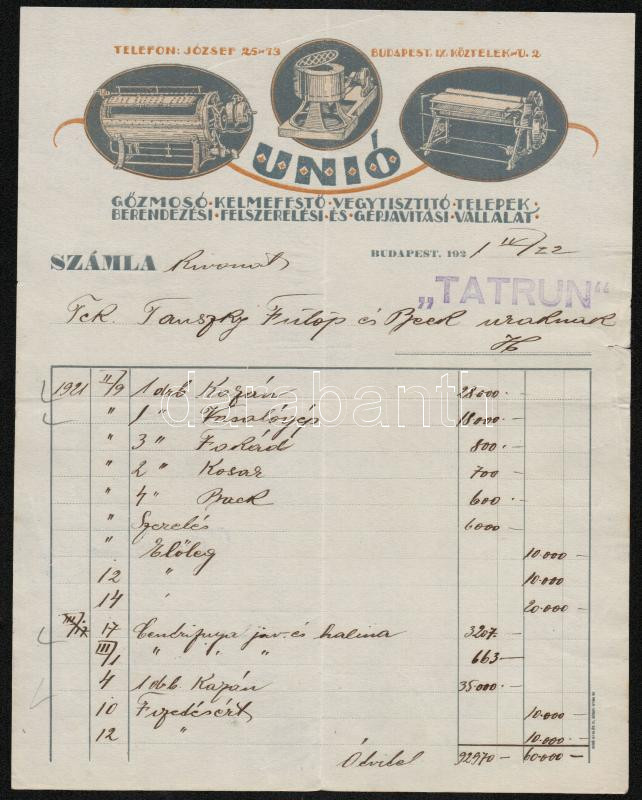 TELEFON: JÓZSEF 25-73
BUDAPEST. IX. KÖZTELEK-U. 2
UNIÓ
GŐZMOSÓ·KELMEFESTŐ·VEGYTISZTITÓ·TELEPEK
BERENDEZÉSI·FELSZERELÉSI·ÉS·GÉPJAVITÁSI·VÁLLALAT
SZÁMLA Kivonat BUDAPEST, 1921 IV/22
„TATRUN“
Tek. Tauszky Fülöp és Beck uraknak
H
1921 II/9 1 drb Kazán 28600.—
" 1 " Vasalógép 18000.—
" 3 " Fakád 800.—
" 2 " Kosar 700—
" 4 " Back 600.—
" Szerelés 6000—
" Előleg 10.000—
12 " 10.000—
14 20.000—
III/17 17 Centrifuga jav. és halina 3207.—
III/1 " " " " 663—
4 1 drb. Kazán 35000.—
10 Fizedésért 10.000—
12 " 10.000—
Átvitel 92970— 60.000—
darabanth